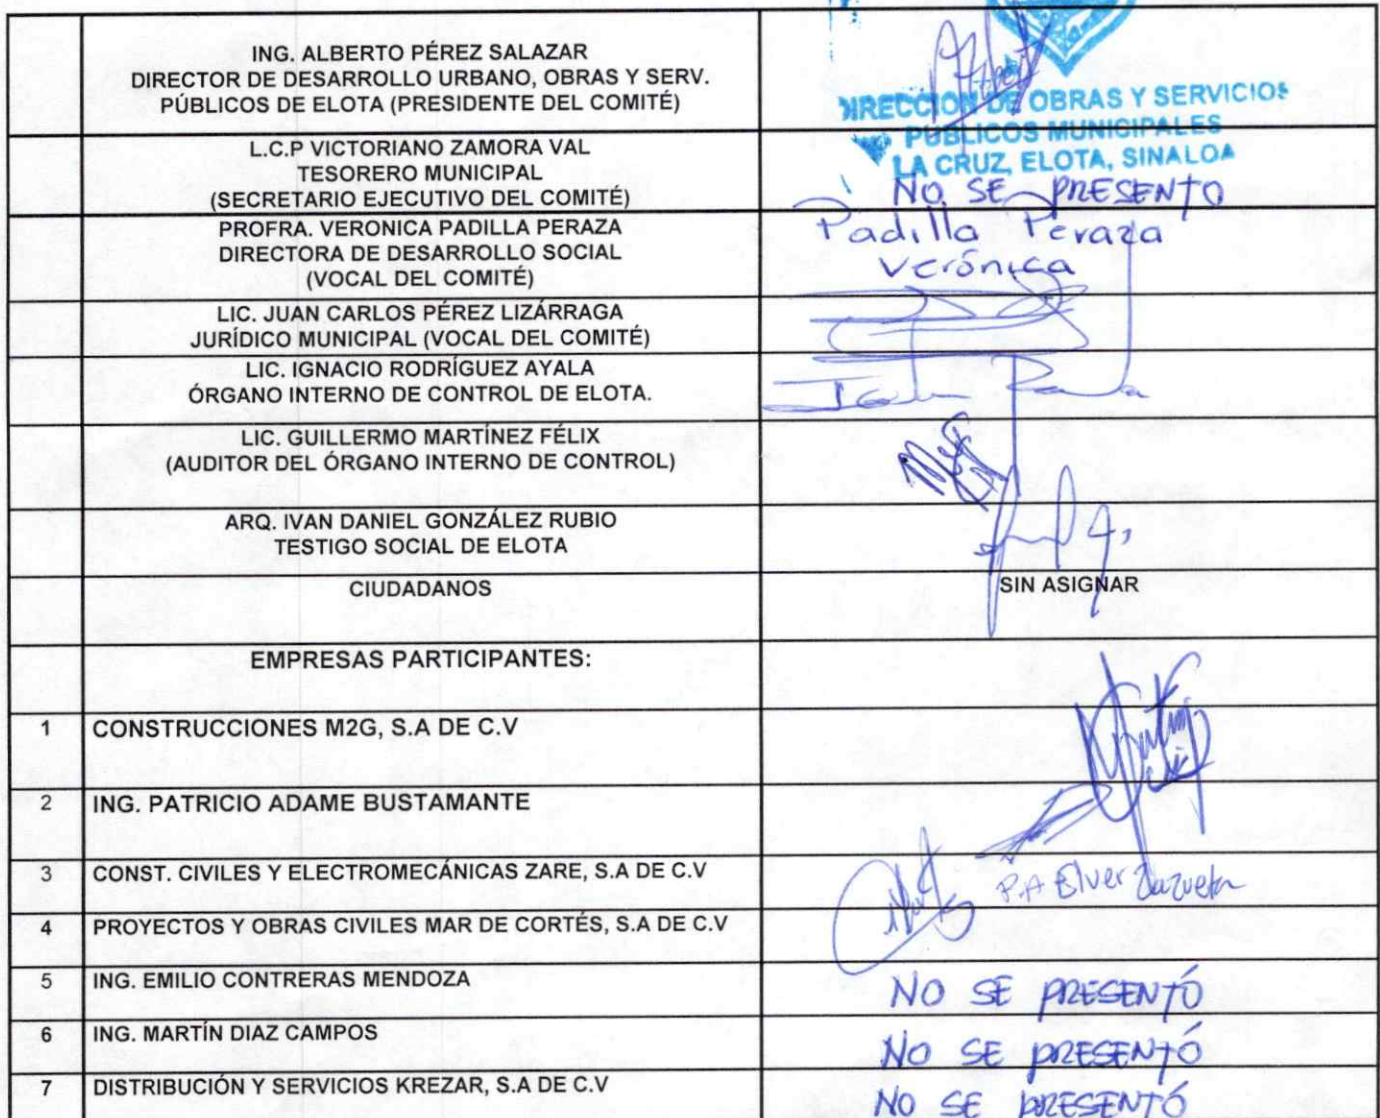 ING. ALBERTO PÉREZ SALAZAR
DIRECTOR DE DESARROLLO URBANO, OBRAS Y SERV.
PÚBLICOS DE ELOTA (PRESIDENTE DEL COMITÉ)
DIRECCION DE OBRAS Y SERVICIOS
PUBLICOS MUNICIPALES
LA CRUZ, ELOTA, SINALOA
L.C.P VICTORIANO ZAMORA VAL
TESORERO MUNICIPAL
(SECRETARIO EJECUTIVO DEL COMITÉ)
NO SE PRESENTO
PROFRA. VERONICA PADILLA PERAZA
DIRECTORA DE DESARROLLO SOCIAL
(VOCAL DEL COMITÉ)
Padilla Peraza
Verónica
LIC. JUAN CARLOS PÉREZ LIZÁRRAGA
JURÍDICO MUNICIPAL (VOCAL DEL COMITÉ)
LIC. IGNACIO RODRÍGUEZ AYALA
ÓRGANO INTERNO DE CONTROL DE ELOTA.
LIC. GUILLERMO MARTÍNEZ FÉLIX
(AUDITOR DEL ÓRGANO INTERNO DE CONTROL)
ARQ. IVAN DANIEL GONZÁLEZ RUBIO
TESTIGO SOCIAL DE ELOTA
CIUDADANOS
SIN ASIGNAR
EMPRESAS PARTICIPANTES:
1 CONSTRUCCIONES M2G, S.A DE C.V
2 ING. PATRICIO ADAME BUSTAMANTE
3 CONST. CIVILES Y ELECTROMECÁNICAS ZARE, S.A DE C.V
P.A Elver Zazueta
4 PROYECTOS Y OBRAS CIVILES MAR DE CORTÉS, S.A DE C.V
5 ING. EMILIO CONTRERAS MENDOZA
NO SE PRESENTÓ
6 ING. MARTÍN DIAZ CAMPOS
NO SE PRESENTÓ
7 DISTRIBUCIÓN Y SERVICIOS KREZAR, S.A DE C.V
NO SE PRESENTÓ